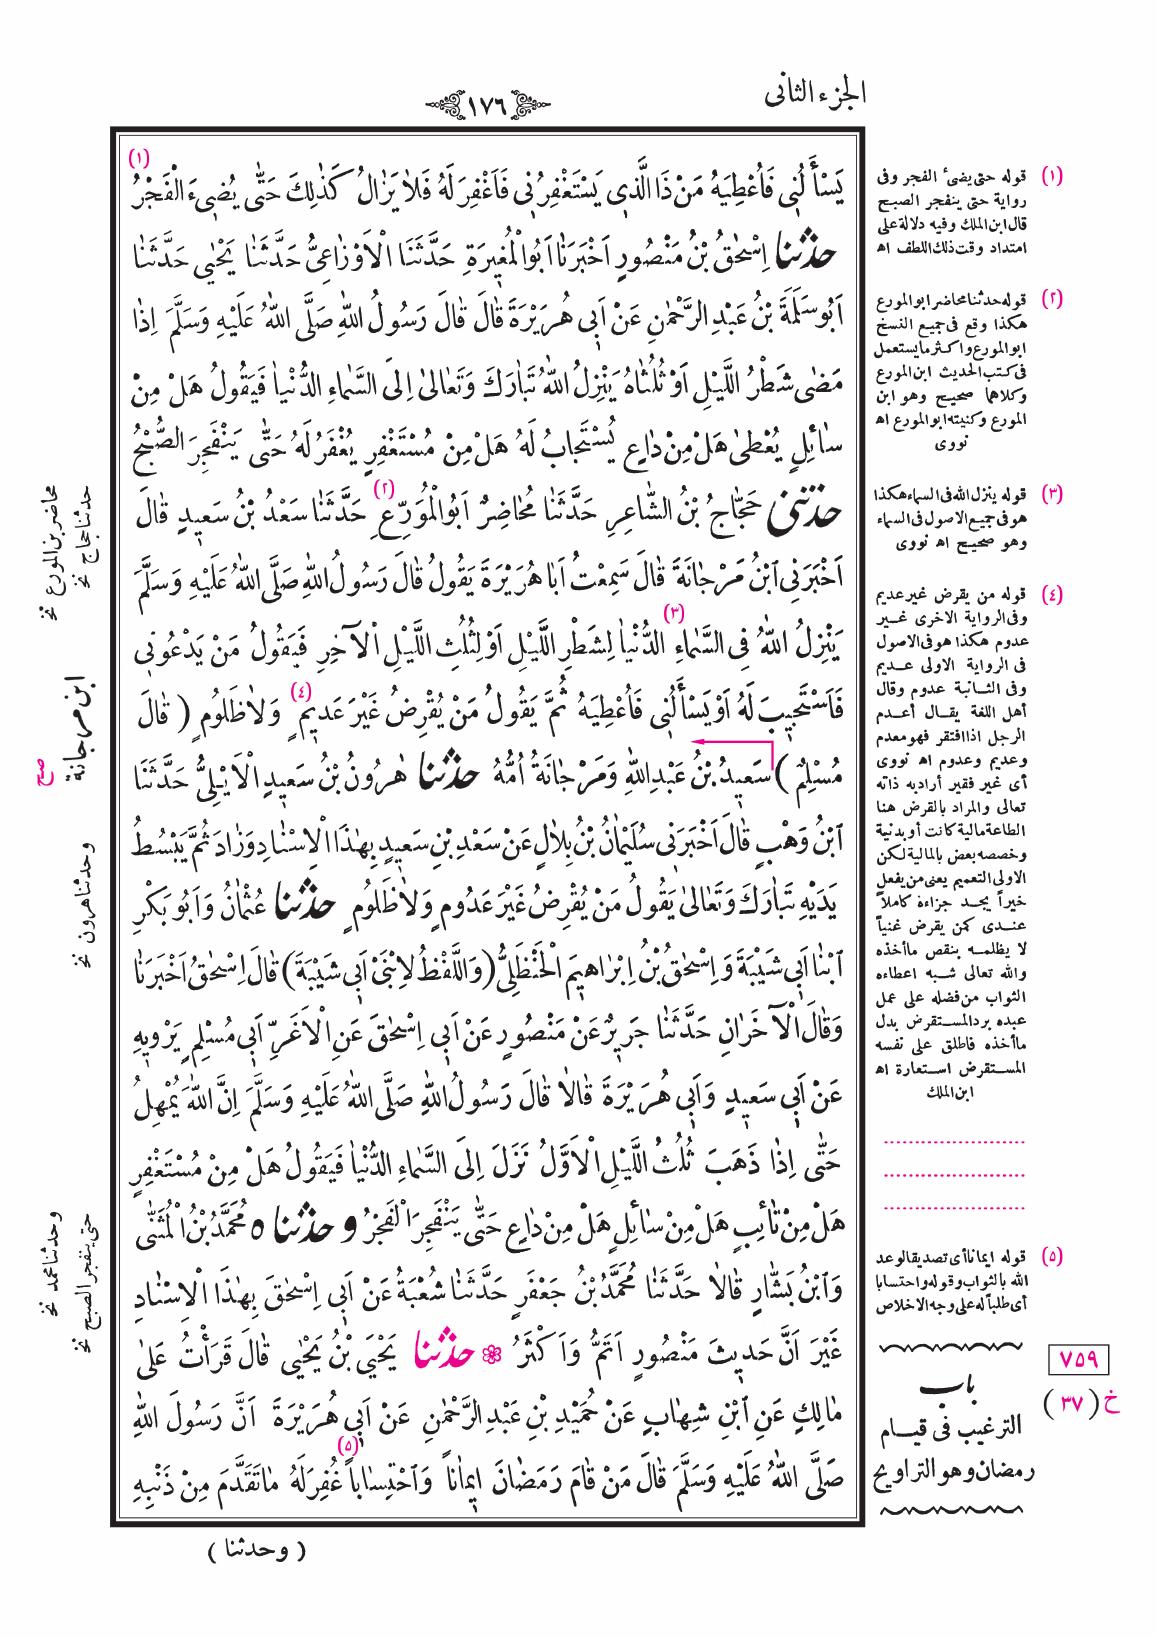 الجزء الثانى
١٧٦
يَسْأَلُنِى فَاُعْطِيَهُ مَنْ ذَا الَّذِى يَسْتَغْفِرُنِى فَاَغْفِرَ لَهُ فَلاَ يَزَالُ كَذٰلِكَ حَتّٰى يُضِىءَ الْفَجْرُ (١)
حدثنا اِسْحٰقُ بْنُ مَنْصُورٍ اَخْبَرَنَا اَبُو الْمُغِيرَةِ حَدَّثَنَا الْاَوْزَاعِىُّ حَدَّثَنَا يَحْيٰى حَدَّثَنَا
اَبُو سَلَمَةَ بْنُ عَبْدِ الرَّحْمٰنِ عَنْ اَبِى هُرَيْرَةَ قَالَ قَالَ رَسُولُ اللهِ صَلَّى اللهُ عَلَيْهِ وَسَلَّمَ اِذَا
مَضٰى شَطْرُ اللَّيْلِ اَوْ ثُلُثَاهُ يَنْزِلُ اللهُ تَبَارَكَ وَتَعَالٰى اِلَى السَّمَاءِ الدُّنْيَا فَيَقُولُ هَلْ مِنْ
سَائِلٍ يُعْطٰى هَلْ مِنْ دَاعٍ يُسْتَجَابُ لَهُ هَلْ مِنْ مُسْتَغْفِرٍ يُغْفَرُ لَهُ حَتّٰى يَنْفَجِرَ الصُّبْحُ
حدثنى حَجَّاجُ بْنُ الشَّاعِرِ حَدَّثَنَا مُحَاضِرٌ اَبُو الْمُوَرِّعِ (٢) حَدَّثَنَا سَعْدُ بْنُ سَعِيدٍ قَالَ
اَخْبَرَنِى ابْنُ مَرْجَانَةَ قَالَ سَمِعْتُ اَبَا هُرَيْرَةَ يَقُولُ قَالَ رَسُولُ اللهِ صَلَّى اللهُ عَلَيْهِ وَسَلَّمَ
يَنْزِلُ اللهُ فِى السَّمَاءِ (٣) الدُّنْيَا لِشَطْرِ اللَّيْلِ اَوْ لِثُلُثِ اللَّيْلِ الْآخِرِ فَيَقُولُ مَنْ يَدْعُونِى
فَاَسْتَجِيبَ لَهُ اَوْ يَسْأَلُنِى فَاُعْطِيَهُ ثُمَّ يَقُولُ مَنْ يُقْرِضُ غَيْرَ عَدِيمٍ (٤) وَلاَ ظَلُومٍ ( قَالَ
مُسْلِمٌ ) سَعِيدُ بْنُ عَبْدِ اللهِ وَمَرْجَانَةُ اُمُّهُ حدثنا هٰرُونُ بْنُ سَعِيدٍ الْاَيْلِىُّ حَدَّثَنَا
ابْنُ وَهْبٍ قَالَ اَخْبَرَنِى سُلَيْمَانُ بْنُ بِلَالٍ عَنْ سَعْدِ بْنِ سَعِيدٍ بِهٰذَا الْاِسْنَادِ وَزَادَ ثُمَّ يَبْسُطُ
يَدَيْهِ تَبَارَكَ وَتَعَالٰى يَقُولُ مَنْ يُقْرِضُ غَيْرَ عَدُومٍ وَلاَ ظَلُومٍ حدثنا عُثْمَانُ وَاَبُو بَكْرِ
ابْنَا اَبِى شَيْبَةَ وَاِسْحٰقُ بْنُ اِبْرَاهِيمَ الْحَنْظَلِىُّ (وَاللَّفْظُ لِابْنَىْ اَبِى شَيْبَةَ) قَالَ اِسْحٰقُ اَخْبَرَنَا
وَقَالَ الْآخَرَانِ حَدَّثَنَا جَرِيرٌ عَنْ مَنْصُورٍ عَنْ اَبِى اِسْحٰقَ عَنِ الْاَغَرِّ اَبِى مُسْلِمٍ يَرْوِيهِ
عَنْ اَبِى سَعِيدٍ وَاَبِى هُرَيْرَةَ قَالاَ قَالَ رَسُولُ اللهِ صَلَّى اللهُ عَلَيْهِ وَسَلَّمَ اِنَّ اللهَ يُمْهِلُ
حَتّٰى اِذَا ذَهَبَ ثُلُثُ اللَّيْلِ الْاَوَّلُ نَزَلَ اِلَى السَّمَاءِ الدُّنْيَا فَيَقُولُ هَلْ مِنْ مُسْتَغْفِرٍ
هَلْ مِنْ تَائِبٍ هَلْ مِنْ سَائِلٍ هَلْ مِنْ دَاعٍ حَتّٰى يَنْفَجِرَ الْفَجْرُ وحدثنا ٥ مُحَمَّدُ بْنُ الْمُثَنّٰى
وَابْنُ بَشَّارٍ قَالاَ حَدَّثَنَا مُحَمَّدُ بْنُ جَعْفَرٍ حَدَّثَنَا شُعْبَةُ عَنْ اَبِى اِسْحٰقَ بِهٰذَا الْاِسْنَادِ
غَيْرَ اَنَّ حَدِيثَ مَنْصُورٍ اَتَمُّ وَاَكْثَرُ حدثنا يَحْيَى بْنُ يَحْيٰى قَالَ قَرَأْتُ عَلٰى
مَالِكٍ عَنِ ابْنِ شِهَابٍ عَنْ حُمَيْدِ بْنِ عَبْدِ الرَّحْمٰنِ عَنْ اَبِى هُرَيْرَةَ اَنَّ رَسُولَ اللهِ
صَلَّى اللهُ عَلَيْهِ وَسَلَّمَ قَالَ مَنْ قَامَ رَمَضَانَ اِيمَاناً (٥) وَاحْتِسَاباً غُفِرَ لَهُ مَا تَقَدَّمَ مِنْ ذَنْبِهِ
( وحدثنا )
(١) قوله حتى يضئ الفجر وفى
رواية حتى ينفجر الصبح
قال ابن الملك وفيه دلالة على
امتداد وقت ذلك اللطف اه
(٢) قوله حدثنا محاضر ابو المورع
هكذا وقع فى جميع النسخ
ابو المورع واكثر ما يستعمل
فى كتب الحديث ابن المورع
وكلاهما صحيح وهو ابن
المورع وكنيته ابو المورع اه
نووى
(٣) قوله ينزل الله فى السماء هكذا
هو فى جميع الاصول فى السماء
وهو صحيح اه نووى
(٤) قوله من يقرض غير عديم
وفى الرواية الاخرى غير
عدوم هكذا هو فى الاصول
فى الرواية الاولى عديم
وفى الثانية عدوم وقال
أهل اللغة يقال أعدم
الرجل اذا افتقر فهو معدم
وعديم وعدوم اه نووى
أى غير فقير أراد به ذاته
تعالى والمراد بالقرض هنا
الطاعة مالية كانت أو بدنية
وخصصه بعض بالمالية لكن
الاولى التعميم يعنى من يفعل
خيراً يجد جزاءه كاملاً
عندى كمن يقرض غنياً
لا يظلمه بنقص ما أخذه
والله تعالى شبه اعطاءه
الثواب من فضله على عمل
عبده برد المستقرض بدل
ما أخذه فاطلق على نفسه
المستقرض استعارة اه
ابن الملك
(٥) قوله ايمانا أى تصديقا لوعد
الله بالثواب وقوله واحتسابا
أى طلبا له على وجه الاخلاص
٧٥٩
خ (٣٧)
باب
الترغيب فى قيام
رمضان وهو التراويح
حدثنا حجاج نخ
محاضر بن المورع نخ
ابن مرجانة
صح
وحدثنا هرون نخ
وحدثنا محمد نخ
حتى ينفجر الصبح نخ